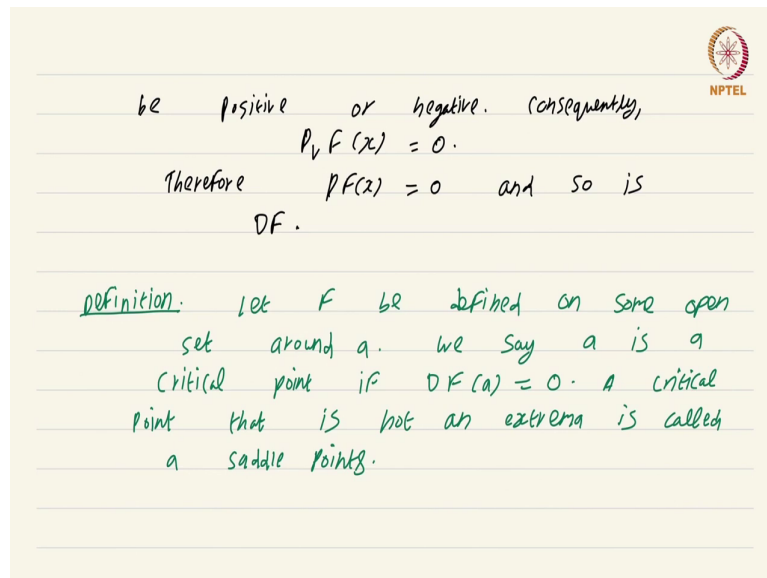 NPTEL
be positive or negative. Consequently,
D_v F(x) = 0.
Therefore DF(x) = 0 and so is
DF.
Definition. Let F be defined on some open
set around a. We say a is a
critical point if DF(a) = 0. A critical
point that is not an extrema is called
a saddle points.